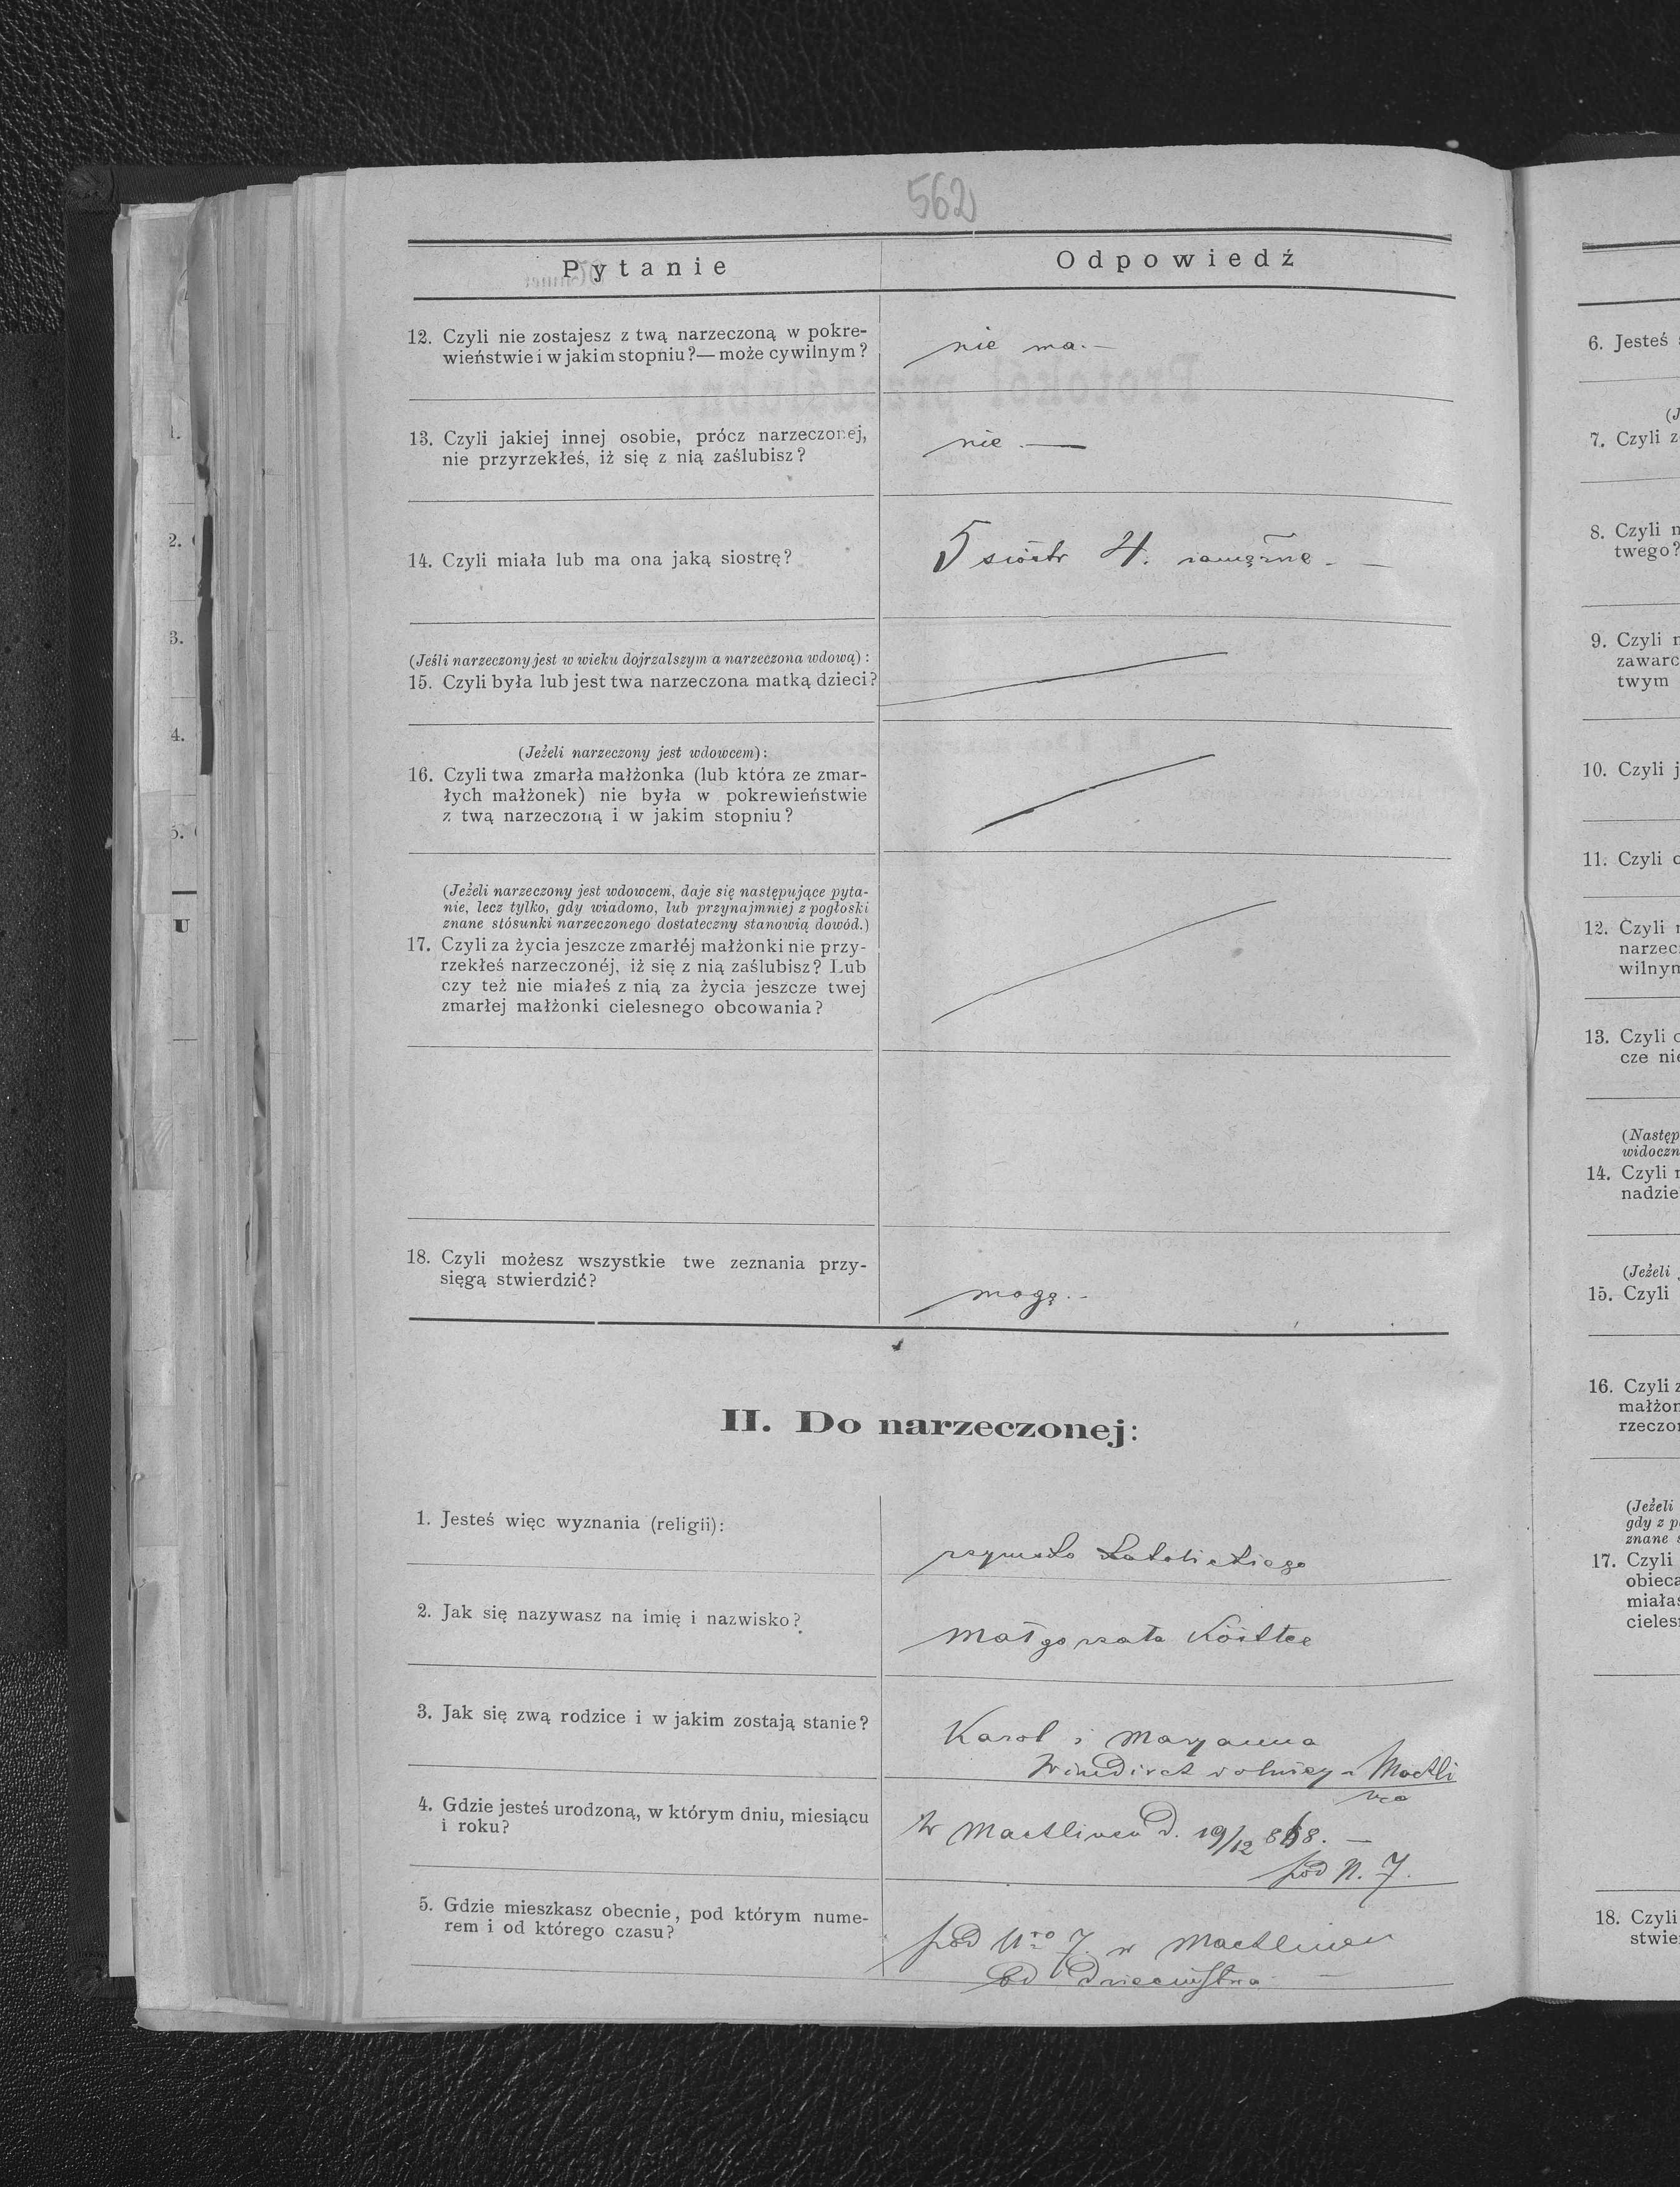 562
Pytanie
Odpowiedź
12. Czyli nie zostajesz z twą narzeczoną w pokre-
wieństwie i w jakim stopniu?— może cywilnym?
nie ma.—
13. Czyli jakiej innej osobie, prócz narzeczonej,
nie przyrzekłeś, iż się z nią zaślubisz?
nie.—
14. Czyli miała lub ma ona jaką siostrę?
5 sióstr 4. zamężne.—
(Jeśli narzeczony jest w wieku dojrzalszym a narzeczona wdową):
15. Czyli była lub jest twa narzeczona matką dzieci?
(Jeżeli narzeczony jest wdowcem):
16. Czyli twa zmarła małżonka (lub która ze zmar-
łych małżonek) nie była w pokrewieństwie
z twą narzeczoną i w jakim stopniu?
(Jeżeli narzeczony jest wdowcem, daje się następujące pyta-
nie, lecz tylko, gdy wiadomo, lub przynajmniej z pogłoski
znane stósunki narzeczonego dostateczny stanowią dowód.)
17. Czyli za życia jeszcze zmarłéj małżonki nie przy-
rzekłeś narzeczonéj, iż się z nią zaślubisz? Lub
czy też nie miałeś z nią za życia jeszcze twej
zmarłej małżonki cielesnego obcowania?
18. Czyli możesz wszystkie twe zeznania przy-
sięgą stwierdzić?
mogę.—
II. Do narzeczonej:
1. Jesteś więc wyznania (religii):
rzymsko katolickiego
2. Jak się nazywasz na imię i nazwisko?
Małgorzata
3. Jak się zwą rodzice i w jakim zostają stanie?
Karol i Maryanna
4. Gdzie jesteś urodzoną, w którym dniu, miesiącu
i roku?
W d. 19/12 868.—
pod N. 7.
5. Gdzie mieszkasz obecnie, pod którym nume-
rem i od którego czasu?
pod Nro 7. w
od dzieciństwa—
1.
2.
3.
4.
5.
U
6. Jesteś
7. Czyli
8. Czyli
twego?
9. Czyli
zawarc
twym
10. Czyli
11. Czyli
12. Czyli
narzec
wilnym
13. Czyli
cze nie
(Następ
widoczn
14. Czyli
nadzie
(Jeżeli
15. Czyli
16. Czyli
małżon
rzeczo
(Jeżeli
gdy z
znane
17. Czyli
obieca
miałaś
cieles
18. Czyli
stwie